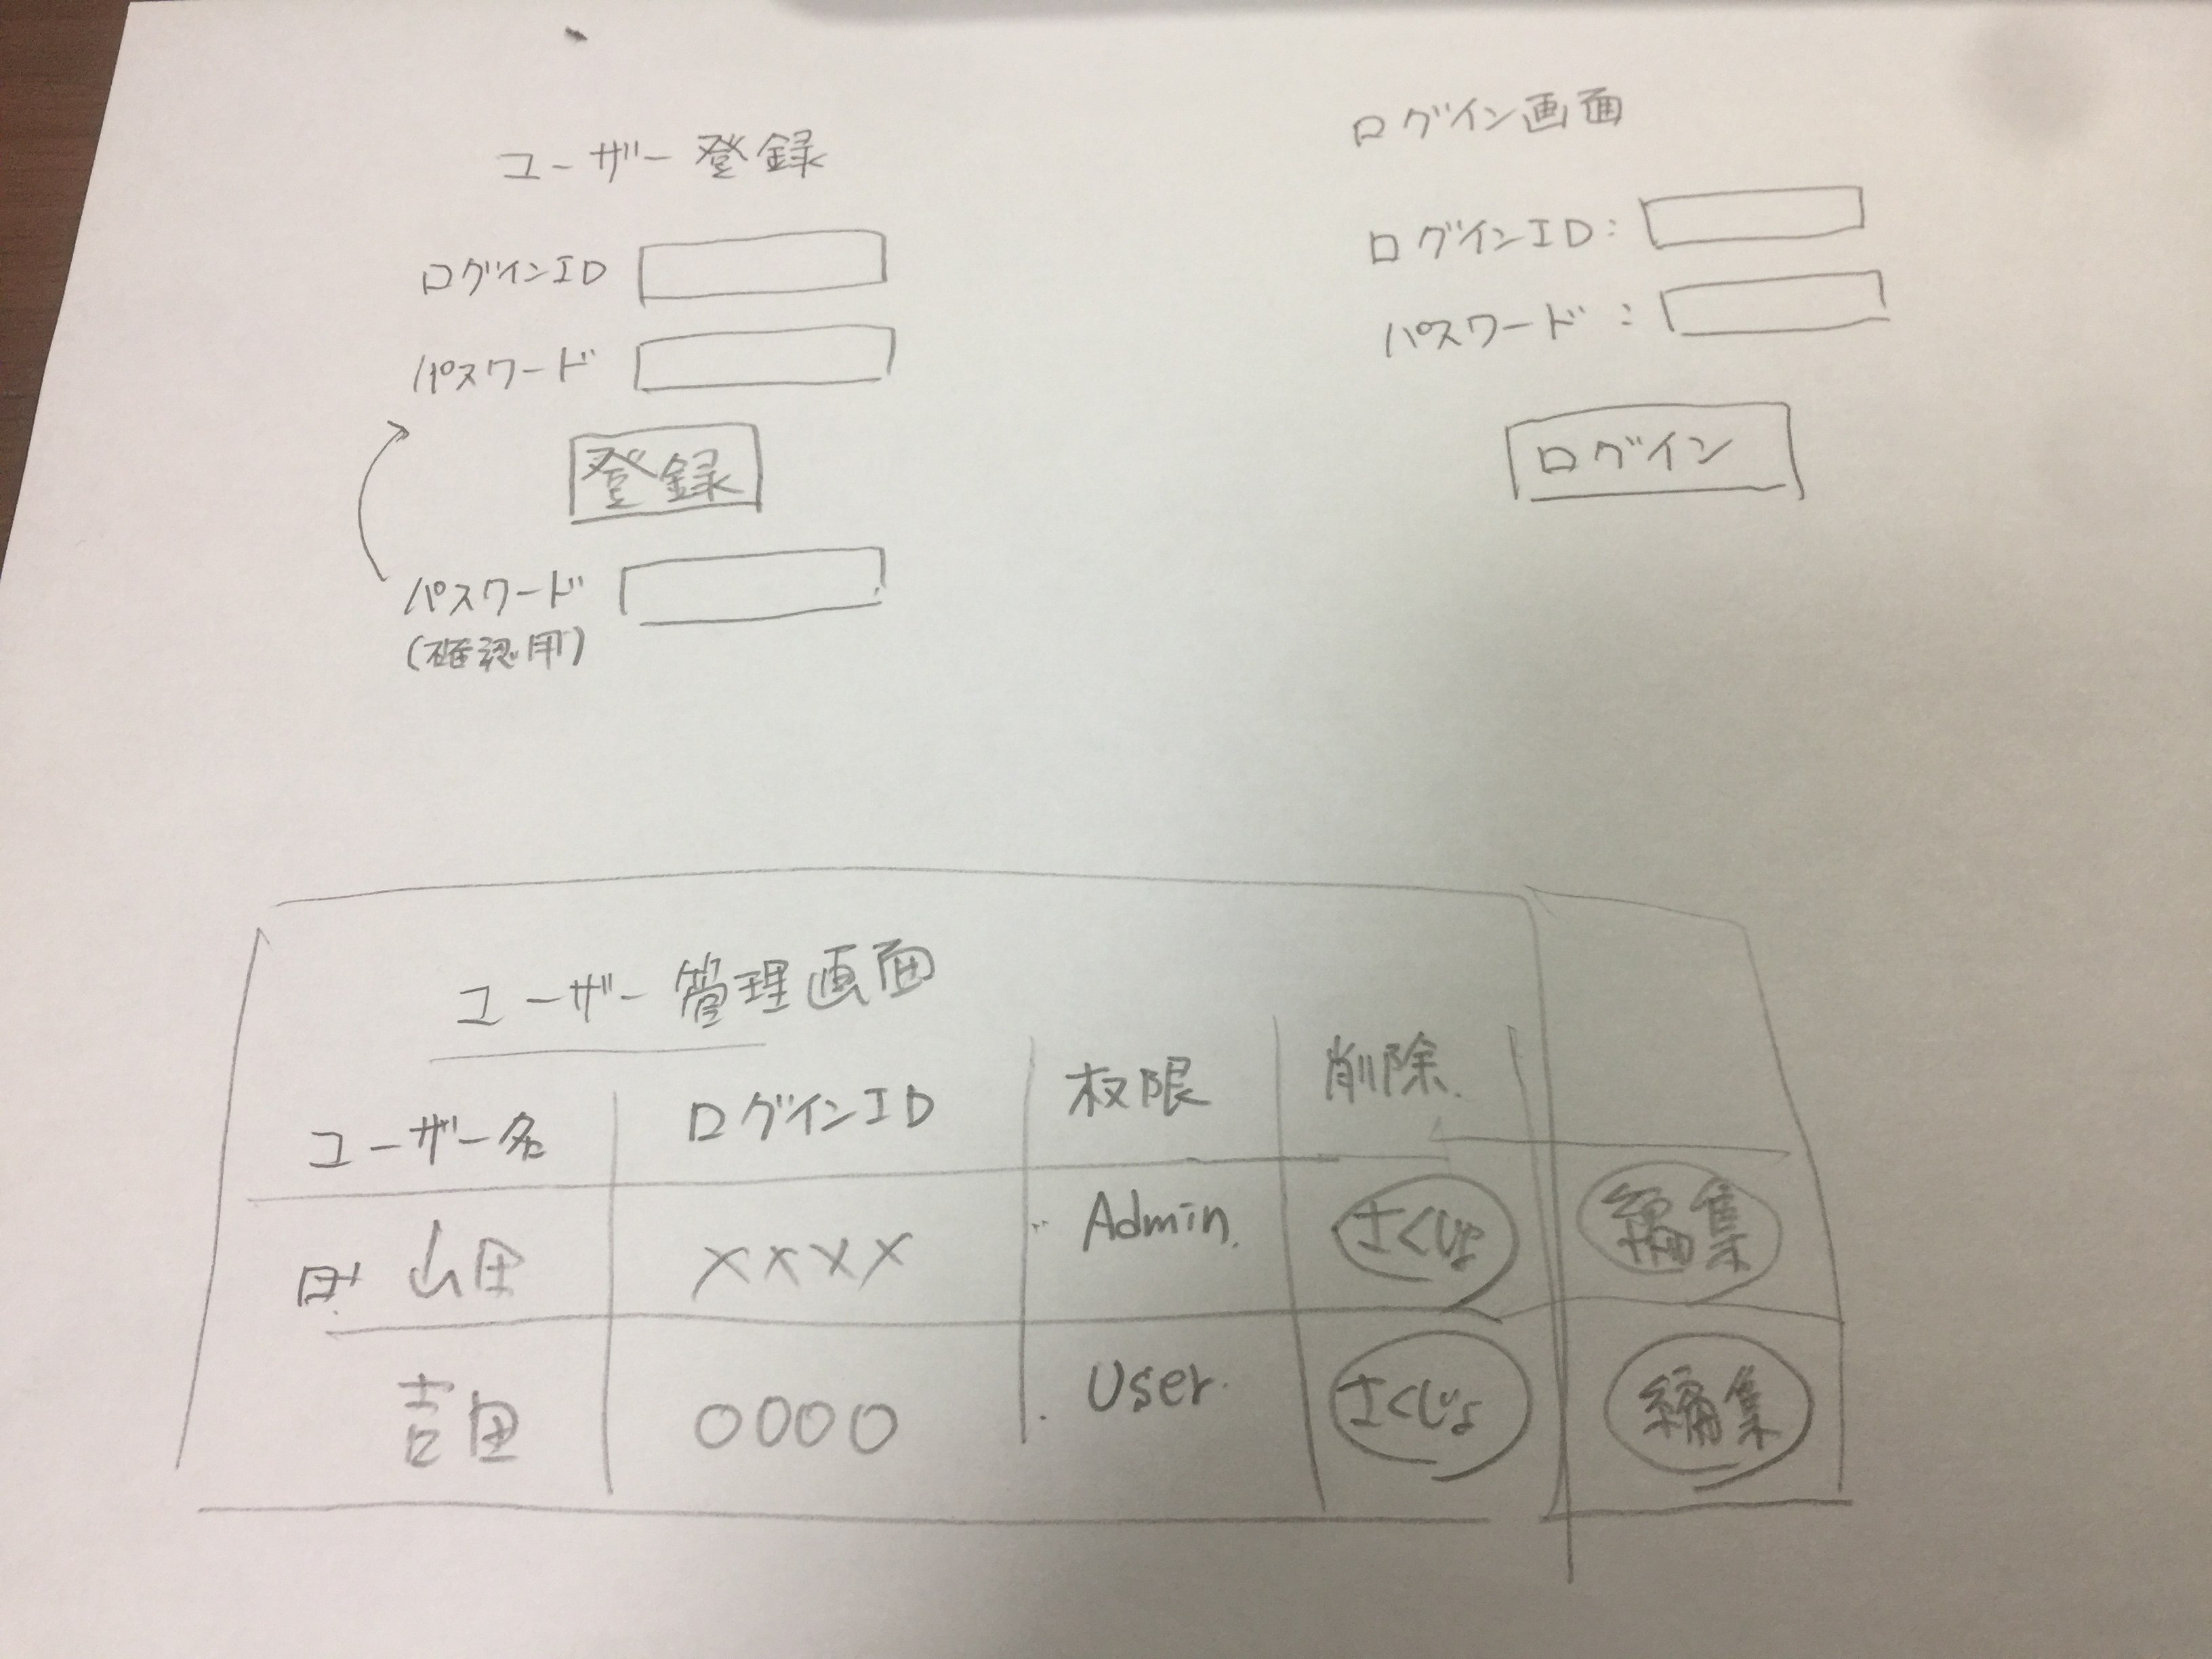 ユーザー登録
ログインID
パスワード
登録
パスワード
(確認用)
ログイン画面
ログインID:
パスワード:
ログイン
ユーザー管理画面
ユーザー名 ログインID 权限 削除.
山田 ×××× Admin. さくじょ 編集
吉田 0000 User. さくじょ 編集